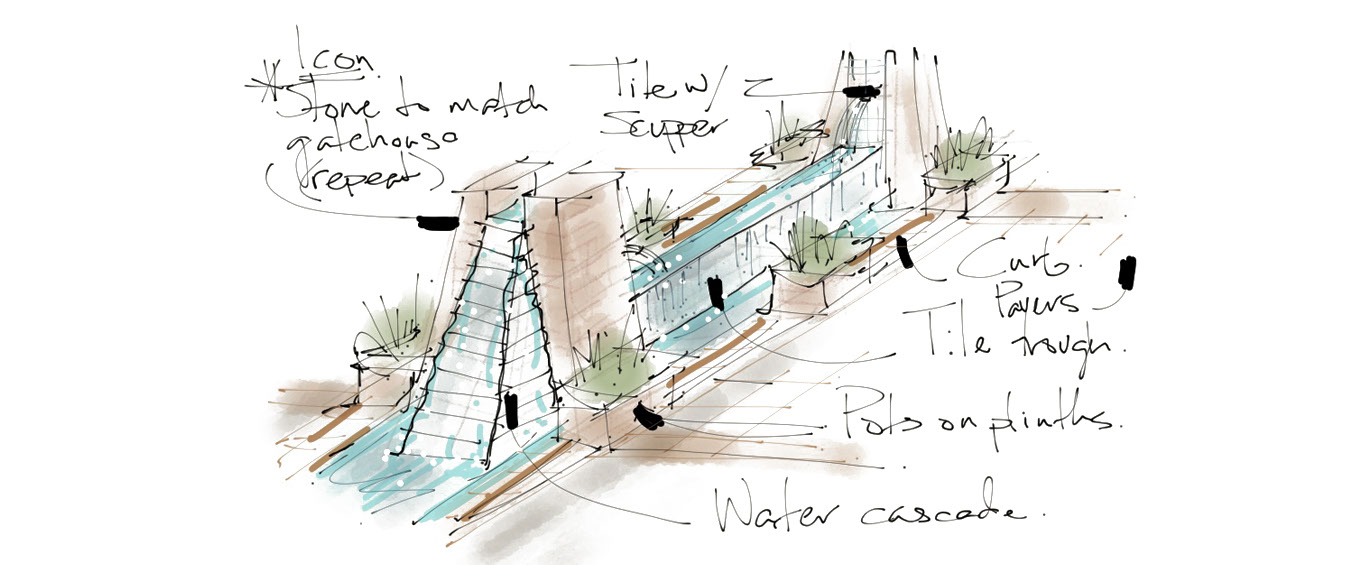 Icon.
* Stone to match
gatehouse
(repeat)
Tile w/
Scupper
Curb.
Pavers
Tile trough.
Pots on plinths.
Water cascade.